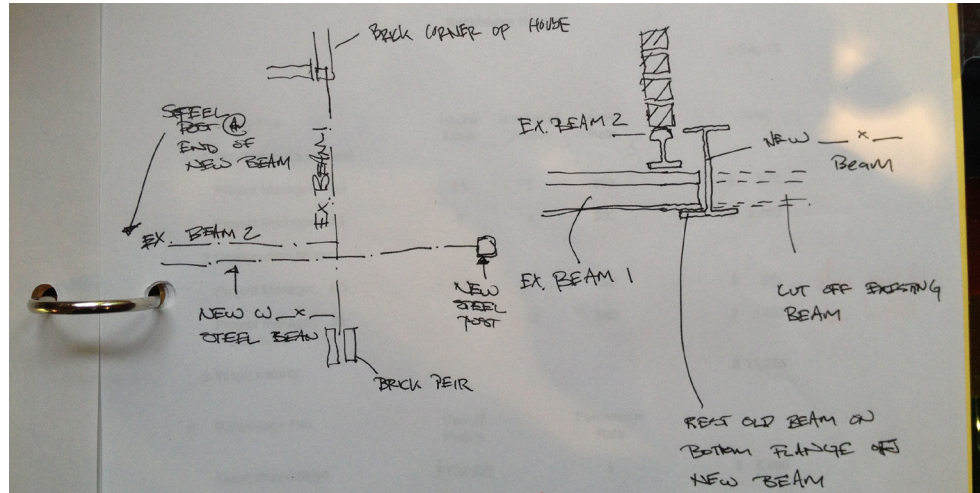 BRICK CORNER OF HOUSE
STEEL
POST @
END OF
NEW BEAM
EX. BEAM 1
EX. BEAM 2
NEW W_x_
STEEL BEAM
NEW
STEEL
POST
BRICK PEIR
EX. BEAM 2
NEW __x__
BEAM
EX. BEAM 1
CUT OFF EXISTING
BEAM
REST OLD BEAM ON
BOTTOM FLANGE OF
NEW BEAM